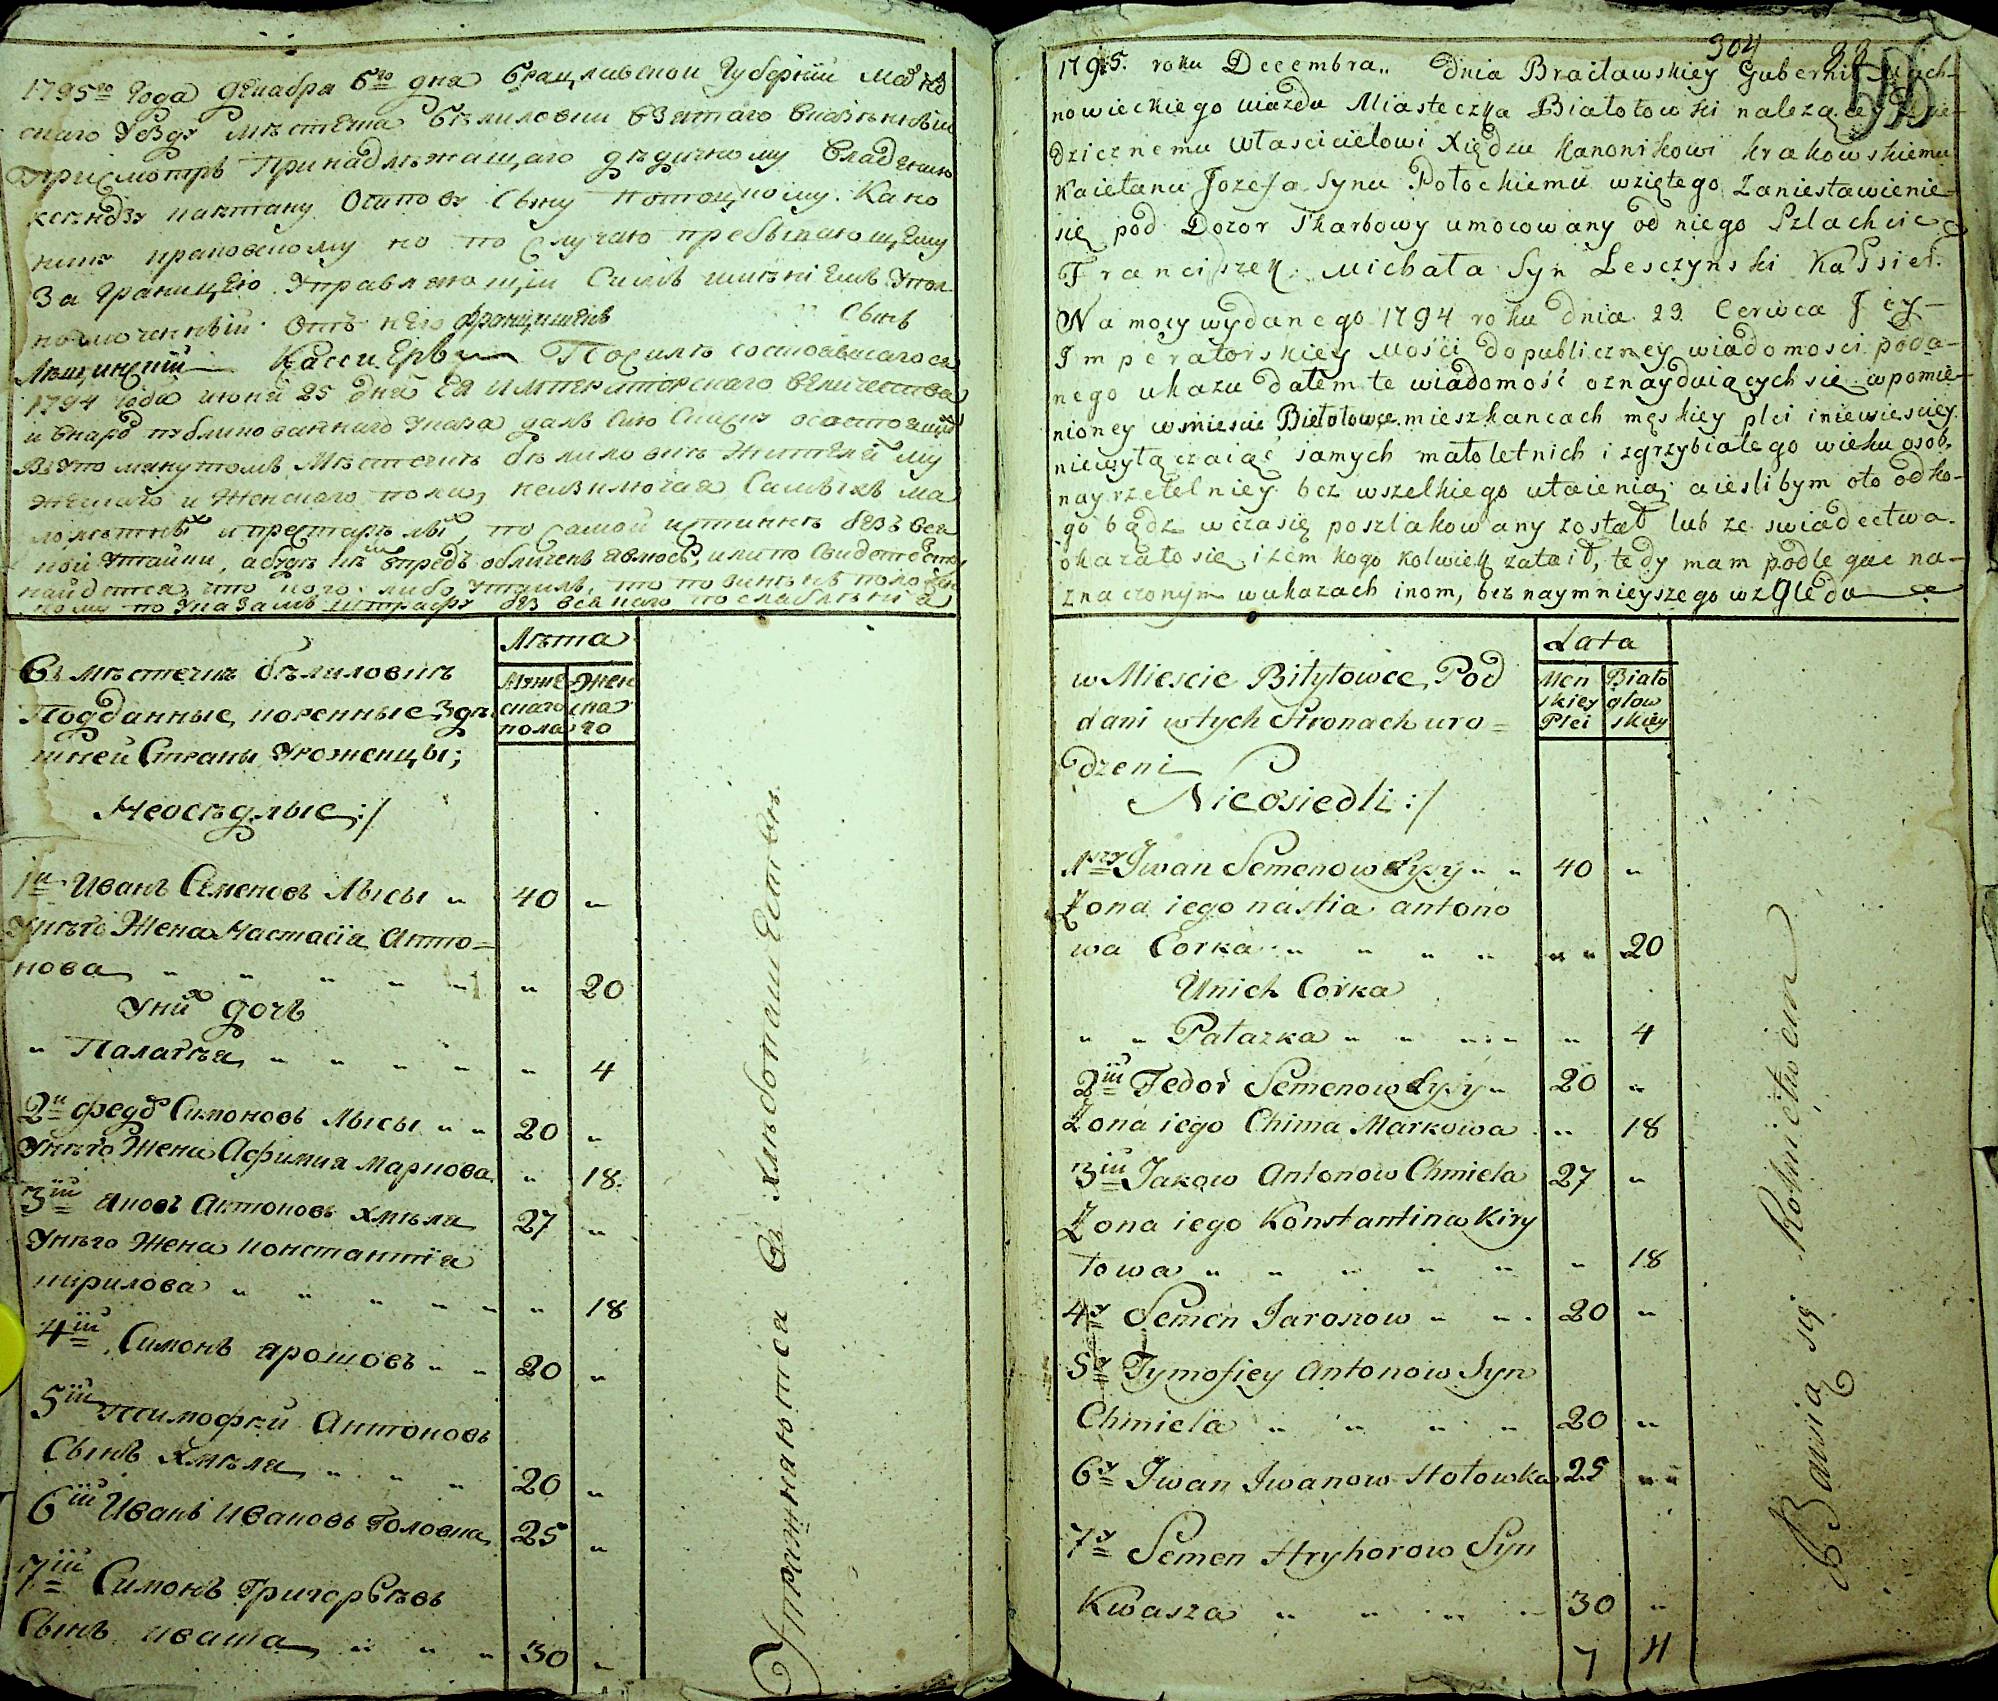 1795го Года Декабря 6го дня Брацлавской Губернiи Махнов
скаго Уезду Местечка Беликовки взятаго в казенный
присмотръ принадлежащаго дедичному владельцу
ксендзу каетану Осипову Сыну потоцкому Кано
нику краковскому но по случаю пребывающему
За Границею Управляющiй Симъ имениемъ Упол
номоченный отъ него францишекъ Сынъ
Лещинский Кассиеръ По силе состоявшагося
1794 года июня 25 дня Ея Императорскаго Величества
и внародъ публикованнаго Указа далъ Сию Сказку о состоящихъ
Въ Упомянутомъ Местечке беликовке жителей му
жескаго и Женскаго пола, неизключая Самыхъ ма
лолетныхъ и престарелыхъ, по самой истинне безъ вся
кой утайки, а будя впредь обличенъ явлюсь, или по Свидетельству
найдется что кого либо утаилъ, то повиненъ положен
ному по Указамъ штрафу без всякаго послабления
Въ местечке беликовке
Подданные коренные Зде
шней Страны Уроженцы;
Неоседлые:/
Лета
Муже
скаго
пола
Жен
ска
го
1й Иванъ Семеновъ Лысы " 40 "
У него Жена Настасiя Анто=
нова " " " " " " 20
У них дочь
" Палагея " " " " " 4
2й федоръ Симоновъ Лысы " " 20 "
У него Жена Афимия Маркова " 18
3iй яковъ Антоновъ хмеля 27 "
У него Жена константiя
кирилова " " " " " " 18
4iй Симонъ ярошовъ " " 20 "
5iй Тимофей Антоновъ
Сынъ Хмеля " " " 20 "
6iй Иванъ Ивановъ Головка 25 "
7iй Симонъ Григорьевъ
Сынъ кваша " " " 30 "
Упражняются въ хлебопашестве
304
1795. roku Decembra „ Dnia Bracławskiey Gubernii Mach-
nowieckiego uiazdu Miasteczka Białołowki należącey dzie-
dzicznemu własicielowi Xiędzu Kanonikowi krakowskiemu
Kaietanu Jozefa Synu Potockiemu wziętego Zaniestawienie
się pod Dozor Skarbowy umocowany od niego Szlachcic
Franciszek Michała Syn Lesczynski Kassier.
Na mocy wydanego 1794 roku dnia 23 Cerwca Jey-
Imperatorskiey Mości do publiczney wiadomosci poda-
nego ukazu dałem te wiadomość oznayduiących się wpomie-
nioney wmieście Biełołowce mieszkancach męskiey płci iniewiesciey
niewyłączaiąc samych małoletnich i zgrzybiałego wieku osob,
nayrzetelniey bez wszelkiego utaienia, aieslibym oto odko-
go bądz wczasię poszlakowany został lub ze swiadectwa
okazało się iżem kogo kolwiek zataił, tedy mam podlegac na-
znaczonym wukazach inom, bez naymnieyszego względu
w Miescie Biłyłowce, Pod
dani wtych Stronach uro=
dzeni
Nieosiedli:/
Lata
Men
skiey
Płci
Biało
głow
skiey
1szy Iwan Semenow Łysy " " 40 "
Zona iego nastia antono
wa Corka " " " " " " 20
Unich Corka
" " Pałazka " " " " " 4
2iii Fedor Semenow Łysy " 20 "
Zona iego Chima Markowa " 18
3iii Jakow Antonow Chmiela 27 "
Zona iego Konstantina Kiry
łowa " " " " " " 18
4y Semen Jaroszow " " 20 "
5y Tymofiey Antonow Syn
Chmiela " " " " 20 "
6y Iwan Iwanow Hołowka 25 " "
7y Semen Hryhorow Syn
Kwasza " " " " 30 "
7 4
Bawią się Rolnictwem